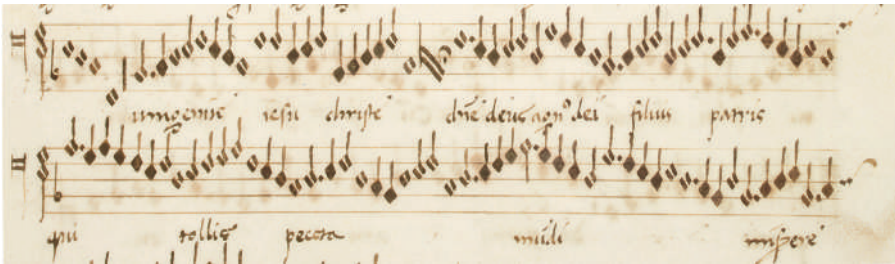 unigenite iesu christe dñe deus agn⁹ dei filius patris
qui tollis peccta mũdi misere